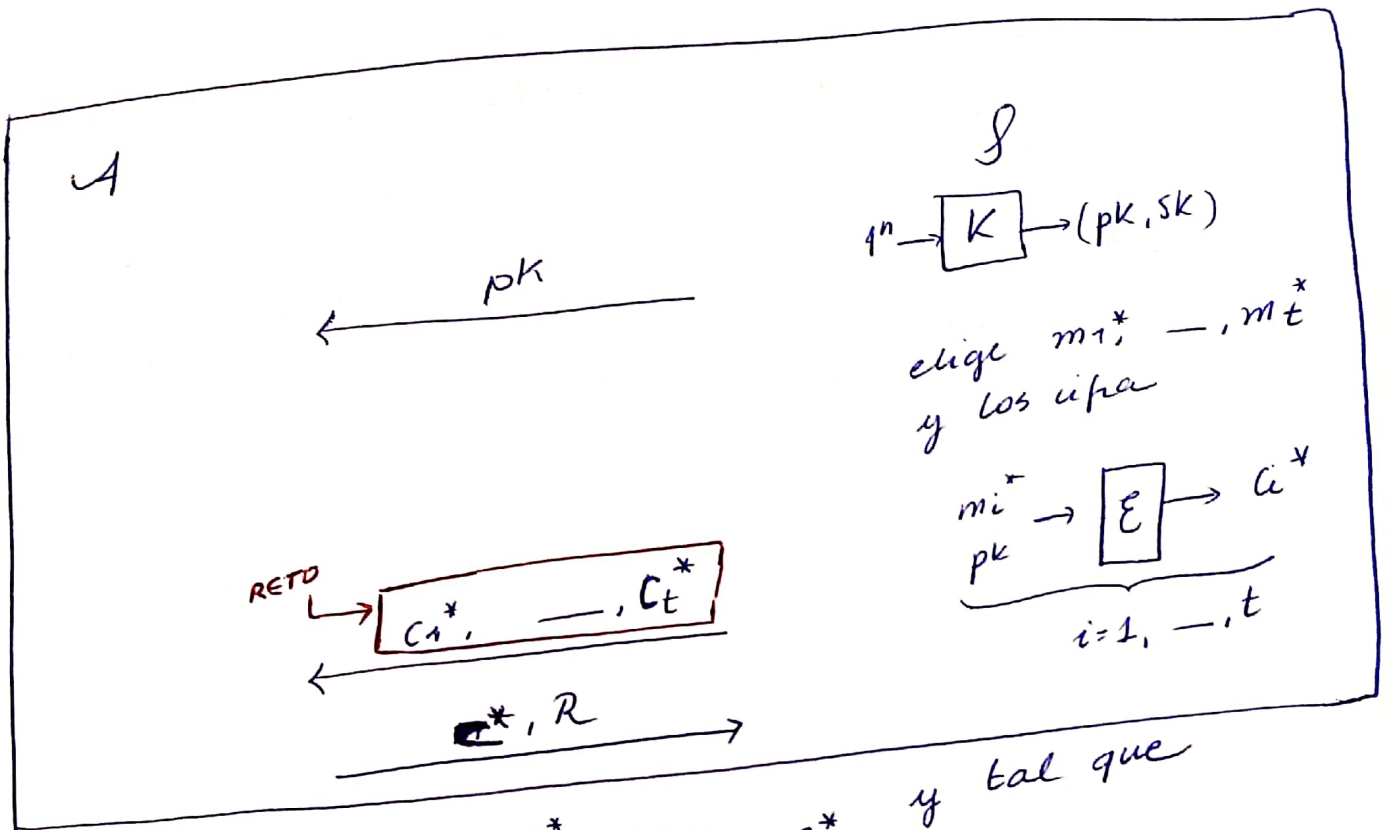 A
S
1ⁿ → K → (pk, sk)
pk
elige m₁*, —, mₜ*
y los cifra
mᵢ* → E → Cᵢ*
pk
i=1, —, t
RETO
C₁*, —, Cₜ*
*, R
y tal que